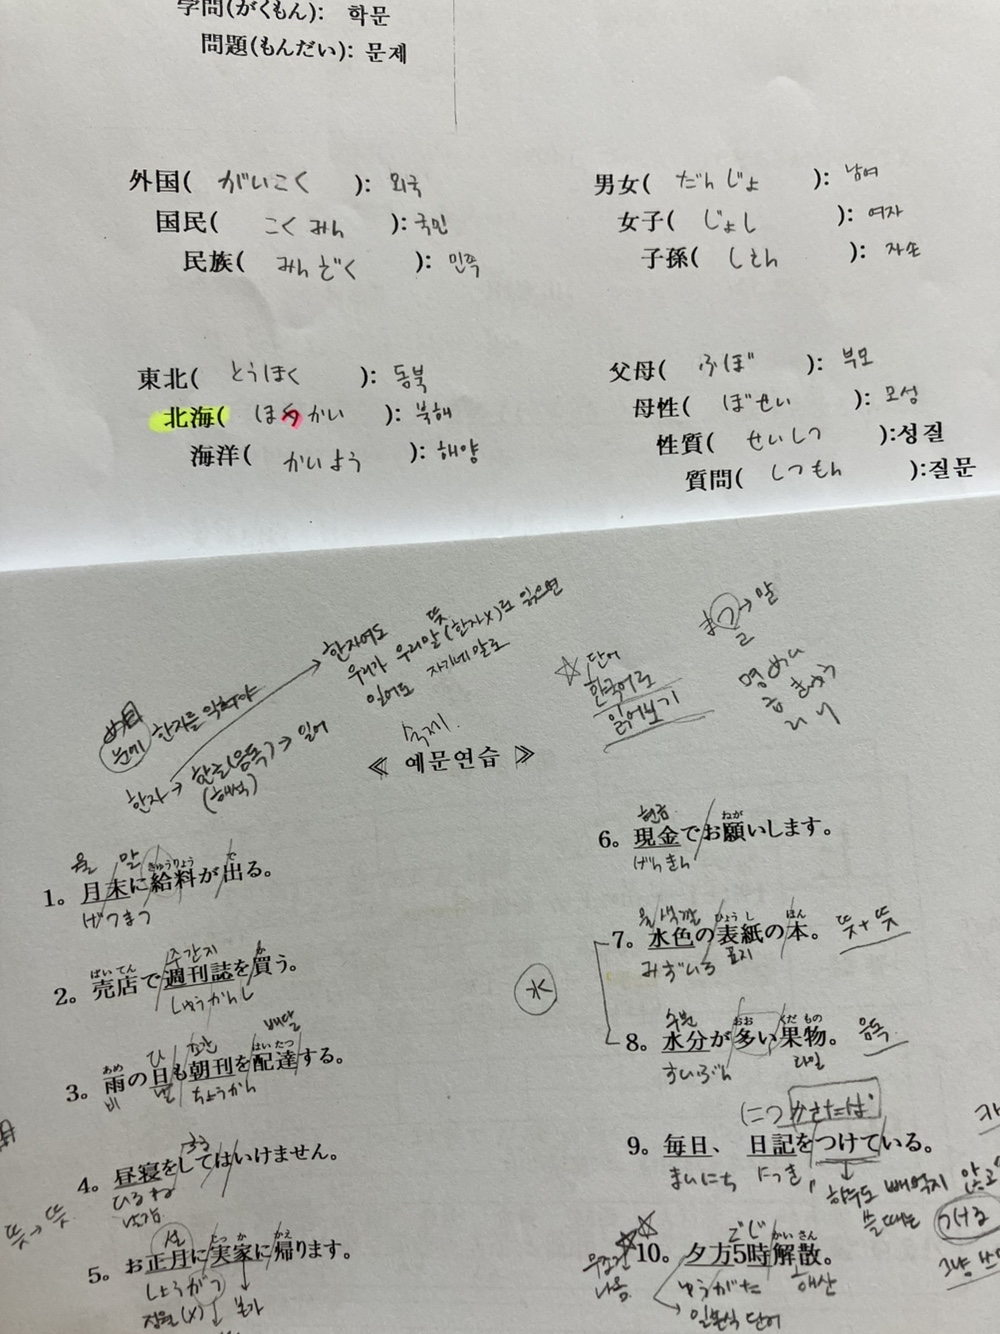 学問(がくもん): 학문
問題(もんだい): 문제
外国( がいこく ): 외국
国民( こくみん ): 국민
民族( みんぞく ): 민족
男女( だんじょ ): 남여
女子( じょし ): 여자
子孫( しそん ): 자손
東北( とうほく ): 동북
北海( ほっかい ): 북해
海洋( かいよう ): 해양
父母( ふぼ ): 부모
母性( ぼせい ): 모성
性質( せいしつ ):성질
質問( しつもん ):질문
한자여도
우리가 우리말(한자X)로 읽으면
뜻
일어도 자기네 말로
눈에 한자를 익혀야
한자→ 한글(음독)→ 일어
(해석)
☆단어
한국어로
읽어보기
まつ→말
숙제.
≪ 예문연습 ≫
월 말 きゅうりょう で
1。月末に給料が出る。
げつまつ
ばいてん 주간지 か
2。売店で週刊誌を買う。
しゅうかんし
あめ ひ はいたつ 배달
3。雨の日も朝刊を配達する。
비 날 ちょうかん
する
4。昼寝をしてはいけません。
ひるね
낮잠
뜻→뜻
설 じっか かえ
5。お正月に実家に帰ります。
しょうがつ
정월(X) 본가
현금 ねが
6。現金でお願いします。
げんきん
물 색깔 ひょうし ほん
7。水色の表紙の本。 뜻+뜻
みずいろ 표지
수분 おお くだもの
8。水分が多い果物。 음독
すいぶん 과일
(につ かさたは゜
9。毎日、日記をつけている。
まいにち にっき 하루도 빼먹지 않고
쓸때는 つける
ごじ かいさん
10。夕方5時解散。
ゆうがた 해산
나옴
일본식 단어